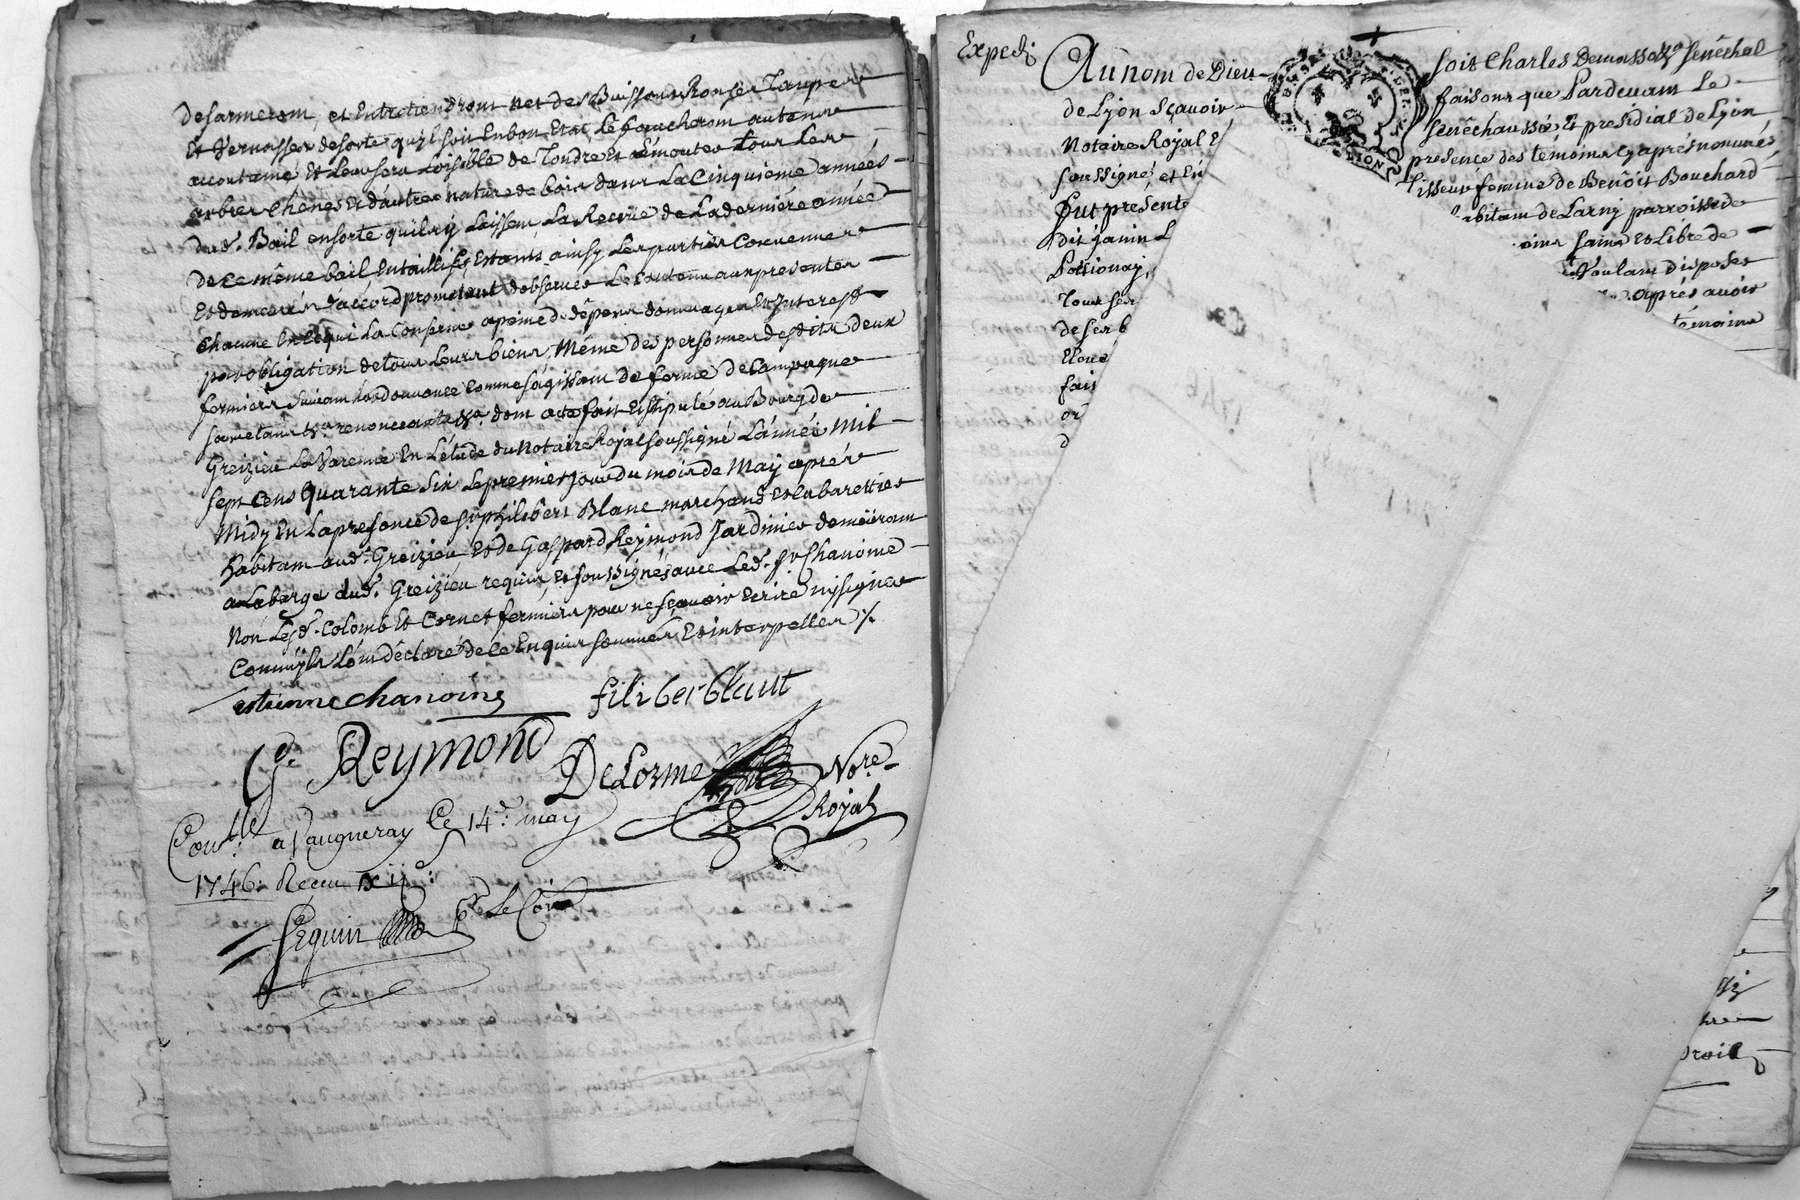 desarmeront, et Entretiendront net des Buissons Ronses Taupes
Et Vernasses desorte qu'il soit Enbon Etat, Le faucheront autems
accoutumé Et Leur sera Loisible de Tondre Et Emouter Tous Les
arbres chênes Et d'autre nature de bois dans La Cinquiéme années
dud. Bail ensorte quil ry Laissent La Recrüe de Laderniére année
de ce même bail En taillis, Estants ainsy Les parties Convenues
Et demeurés d'accord promettant d'observer Le Contenu aux presentes
chacune En ce qui La Conserne apeine d. dépens dommages Et Interests
par obligation detous Leurs biens, Même des personnes desdits deux
fermiers Suivant Lordonnance comme s'agissant de ferme de Campagne
soumettans &a. renonceants &a. dont acte fait Et stipulé au Bourg de
Greizieu La Varenne En L'étude du Notaire Royal soussigné L'année Mil
sept Cens Quarante Six Le premier Jour du mois de May aprés
Midy En La presence de sr philibert Blanc marchand Et Cabarettier
habitant aud. Greizieu Et de Gaspard Reymond Jardinier demeurant
a La barge dud. Greizieu requis Et soussignés avec Led. sr Chanoine
Non Lesd. Colomb Et Cornet fermiers pour ne sçavoir Ecrire ny signer
Comm'ils L'ont déclaré de ce Enquis sommés Et interpellés ./.
estienne chanoine filiberblant
G. Reymond DeLorme Nore.
Royal
Conlle. a Vaugneray Ce 14e. may
1746. Receu
Seguin
Exped.
Au nom de Dieu soit Charles Demasso &a Senêchal
de Lyon Sçavoir faisons que Pardevant Le
Notaire Royal E Senêchaussé Et presidial de Lyon
soussigné, et En presence des temoins cy aprés nommés
fut presente Tisseur femme de Benoît Bouchard
dit janin L abitant de Larny parroisse de
Possionay oins saine Et Libre de
Tous ses Voulant disposer
de ses b aprés avoir
témoins
fait
or
d